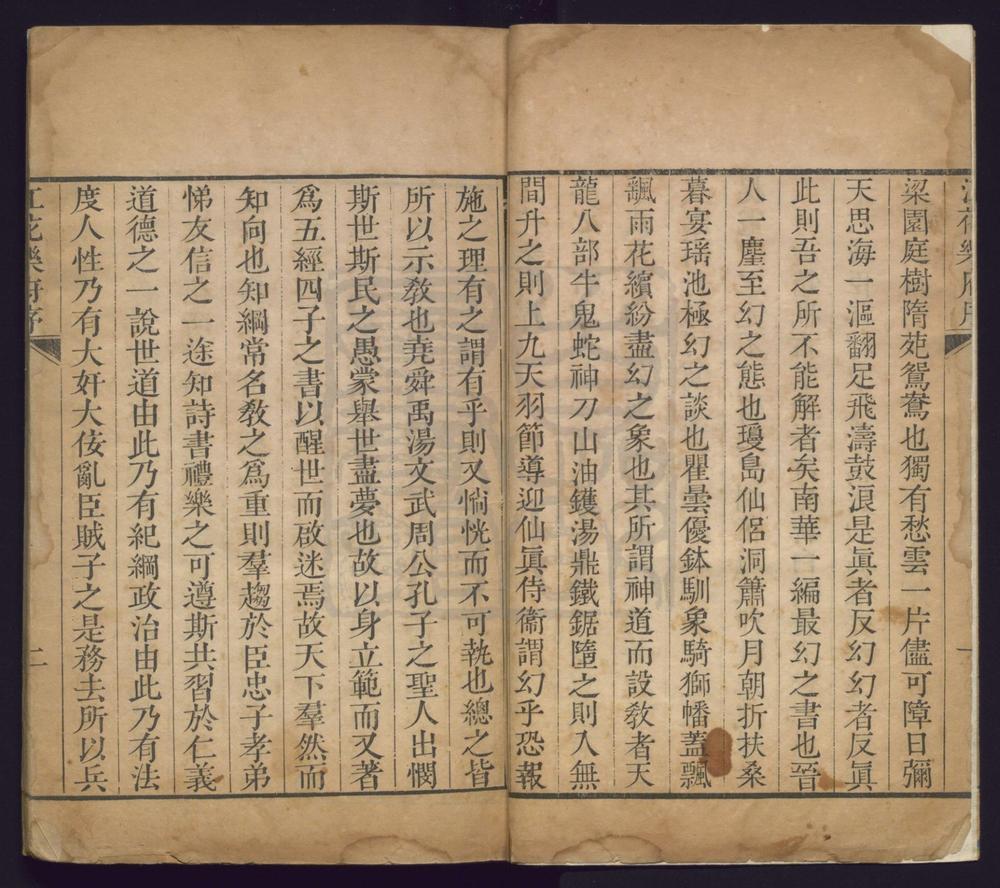 梁園庭樹隋苑鴛鴦也獨有愁雲一片儘可障日彌
天思海一漚翻足飛濤鼓浪是眞者反幻幻者反眞
此則吾之所不能解者矣南華一編最幻之書也晉
人一麈至幻之態也瓊島仙侶洞簫吹月朝折扶桑
暮宴瑶池極幻之談也瞿曇優鉢馴象騎獅幡蓋飄
飄雨花繽紛盡幻之象也其所謂神道而設敎者天
龍八部牛鬼蛇神刀山油鑊湯鼎鐵鋸墮之則入無
間升之則上九天羽節導迎仙眞侍衞謂幻乎恐報
施之理有之謂有乎則又惝恍而不可執也總之皆
所以示敎也堯舜禹湯文武周公孔子之聖人出憫
斯世斯民之愚蒙舉世盡夢也故以身立範而又著
爲五經四子之書以醒世而啟迷焉故天下羣然而
知向也知綱常名敎之爲重則羣趨於臣忠子孝弟
悌友信之一途知詩書禮樂之可遵斯共習於仁義
道德之一說世道由此乃有紀綱政治由此乃有法
度人性乃有大奸大佞亂臣賊子之是務去所以兵
花樂府序
二